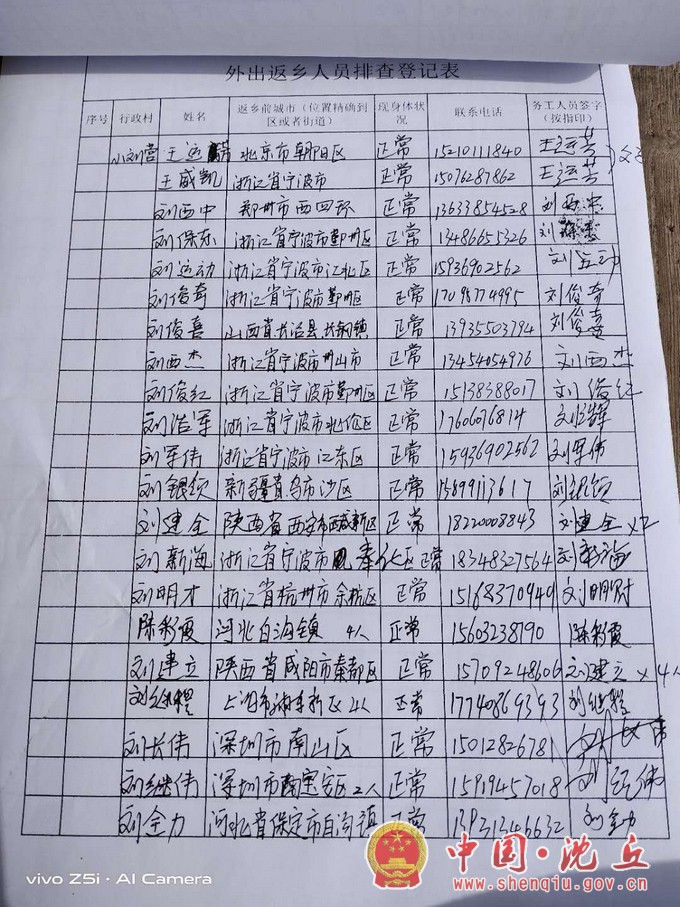 外出返乡人员排查登记表
序号 行政村 姓名 返乡前城市（位置精确到区或者街道） 现身体状况 联系电话 务工人员签字（按指印）
小刘营 王运 北京市朝阳区 正常 15210111840 王运芳
王威凯 浙江省宁波市 正常 15076287862 王运芳
刘西中 郑州市西四环 正常 13633854528 刘西中
刘保东 浙江省宁波市鄞州区 正常 13486655326 刘
刘运动 浙江省宁波市江北区 正常 15936902562 刘运动
刘俊奇 浙江省宁波市鄞州区 正常 17098774995 刘俊奇
刘俊喜 山西省长治县 正常 13935503794 刘俊喜
刘西杰 浙江省宁波市舟山市 正常 13454054976 刘西杰
刘俊红 浙江省宁波市鄞州区 正常 15138388017 刘俊红
刘浩军 浙江省宁波市北仑区 正常 17606076814 刘
刘军伟 浙江省宁波市江东区 正常 15936902562 刘军伟
刘银领 新疆省乌市沙区 正常 15899113617 刘银领
刘建全 陕西省西安市西咸新区 正常 18220008843 刘建全 x2
刘新海 浙江省宁波市奉化区 正常 18348327564 刘新海
刘明才 浙江省杭州市余杭区 正常 15168370940 刘明财
陈彩霞 河北白沟镇 4人 正常 15603238790 陈彩霞
刘建立 陕西省咸阳市秦都区 正常 15709248606 刘建立 x4人
刘继程 上海市浦东新区 2人 正常 17740869393 刘继程
刘长伟 深圳市南山区 正常 1501282678 刘长伟
刘继伟 深圳市宝安区 2人 正常 15919457018 刘伟
刘全力 河北省保定市白沟镇 正常 13931346632 刘全力
vivo Z5i · AI Camera
中国·沈丘
www.shenqiu.gov.cn